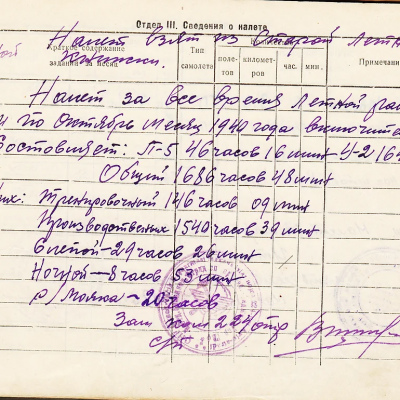 Отдел III. Сведения о налете
Налет взят из старой летн
ной книжки.
Краткое содержание заданий за месяц
Тип самолета
поле-тов
километ-ров
час.
мин.
Примечани
Налет за все время летной ра
и по Октябрь месяц 1940 года включите
составляет: П-5 46 часов 16 мин У-2 16
Общий 1686 часов 48 мин
них: Тренировочный 146 часов 09 мин
Производственных 1540 часов 39 мин
Слепой - 29 часов 26 мин
Ночной - 8 часов 53 мин
р/Маяка - 20 часов
Зам ком 224 отр